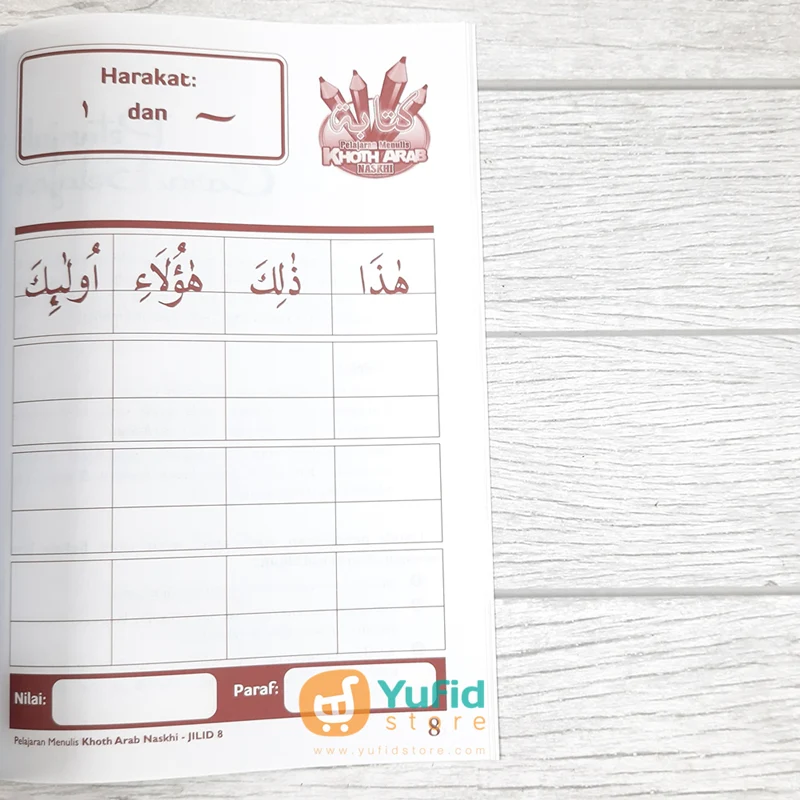 Harakat:
ٰ dan ~
كتابة
Pelajaran Menulis
KHOTH ARAB
NASKHI
هٰذَا ذٰلِكَ هٰؤُلَاءِ أُولٰئِكَ
Nilai: Paraf:
Yufid
store
8
Pelajaran Menulis Khoth Arab Naskhi - JILID 8
www.yufidstore.com